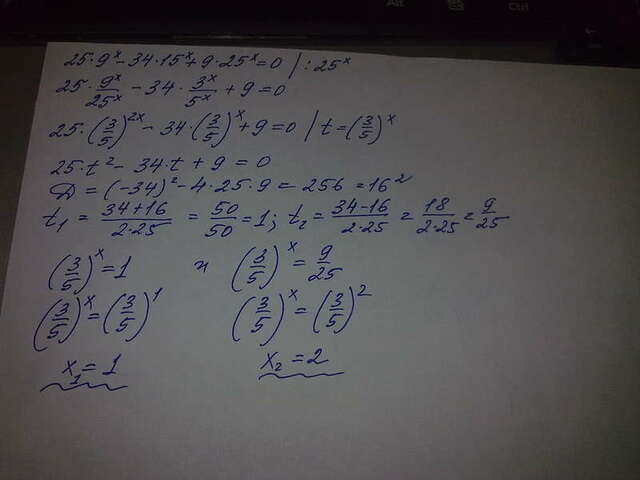 Alt
Ctrl
25·9^x - 34·15^x + 9·25^x = 0 | :25^x
25·9^x/25^x - 34·3^x/5^x + 9 = 0
25·(3/5)^2x - 34·(3/5)^x + 9 = 0 | t = (3/5)^x
25·t² - 34·t + 9 = 0
D = (-34)² - 4·25·9 = 256 = 16²
t₁ = (34+16)/(2·25) = 50/50 = 1; t₂ = (34-16)/(2·25) = 18/(2·25) = 9/25
(3/5)^x = 1 и (3/5)^x = 9/25
(3/5)^x = (3/5)^1 (3/5)^x = (3/5)^2
x₁ = 1 x₂ = 2